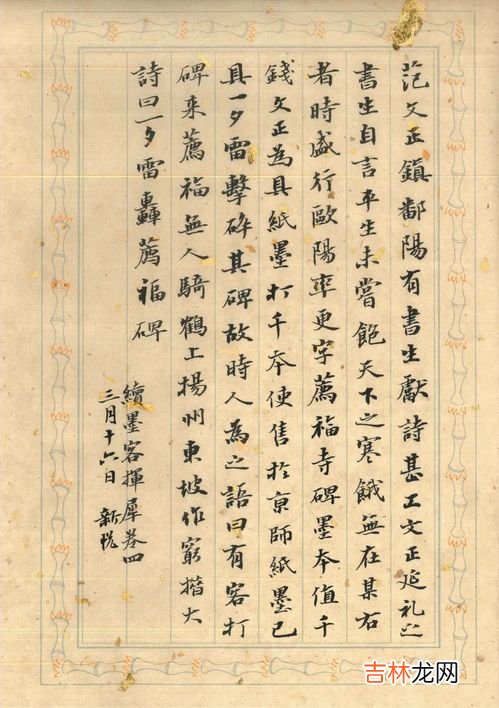 范文正鎮鄱陽有書生獻詩甚工文正延礼之
書生自言平生未嘗飽天下之寒餓無在某右
者時盛行歐陽率更字薦福寺碑墨本值千
錢文正為具紙墨打千本使售於京師紙墨已
具一夕雷擊碎其碑故時人為之語曰有客打
碑来薦福無人騎鶴上揚州東坡作窮措大
詩曰一夕雷轟薦福碑
續墨客揮犀卷四
三月十六日 新悦
吉林龙网